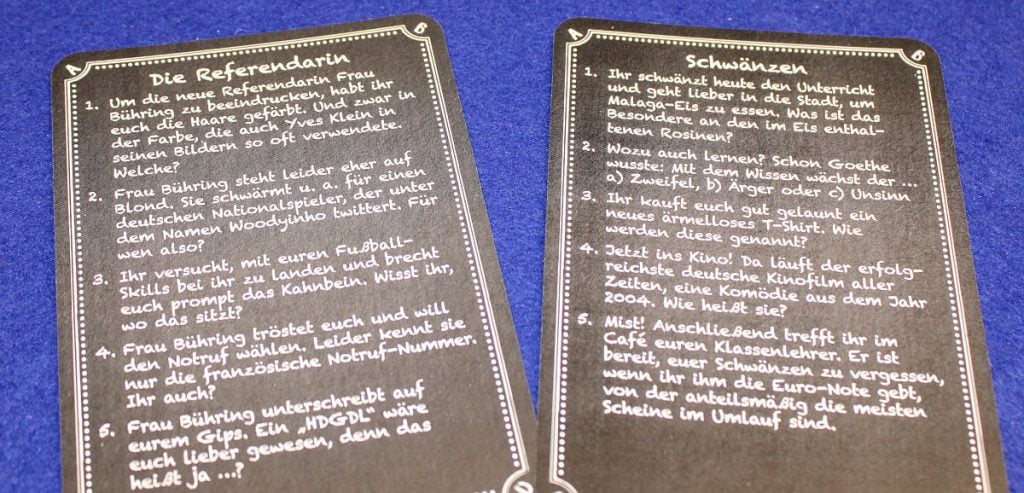 A
B
Die Referendarin
1. Um die neue Referendarin Frau
Bühring zu beeindrucken, habt ihr
euch die Haare gefärbt. Und zwar in
der Farbe, die auch Yves Klein in
seinen Bildern so oft verwendete.
Welche?
2. Frau Bühring steht leider eher auf
Blond. Sie schwärmt u. a. für einen
deutschen Nationalspieler, der unter
dem Namen Woodyinho twittert. Für
wen also?
3. Ihr versucht, mit euren Fußball-
Skills bei ihr zu landen und brecht
euch prompt das Kahnbein. Wisst ihr,
wo das sitzt?
4. Frau Bühring tröstet euch und will
den Notruf wählen. Leider kennt sie
nur die französische Notruf-Nummer.
Ihr auch?
5. Frau Bühring unterschreibt auf
eurem Gips. Ein „HDGDL“ wäre
euch lieber gewesen, denn das
heißt ja ...?
D
A
B
Schwänzen
1. Ihr schwänzt heute den Unterricht
und geht lieber in die Stadt, um
Malaga-Eis zu essen. Was ist das
Besondere an den im Eis enthal-
tenen Rosinen?
2. Wozu auch lernen? Schon Goethe
wusste: Mit dem Wissen wächst der ...
a) Zweifel, b) Ärger oder c) Unsinn
3. Ihr kauft euch gut gelaunt ein
neues ärmelloses T-Shirt. Wie
werden diese genannt?
4. Jetzt ins Kino! Da läuft der erfolg-
reichste deutsche Kinofilm aller
Zeiten, eine Komödie aus dem Jahr
2004. Wie heißt sie?
5. Mist! Anschließend trefft ihr im
Café euren Klassenlehrer. Er ist
bereit, euer Schwänzen zu vergessen,
wenn ihr ihm die Euro-Note gebt,
von der anteilsmäßig die meisten
Scheine im Umlauf sind.